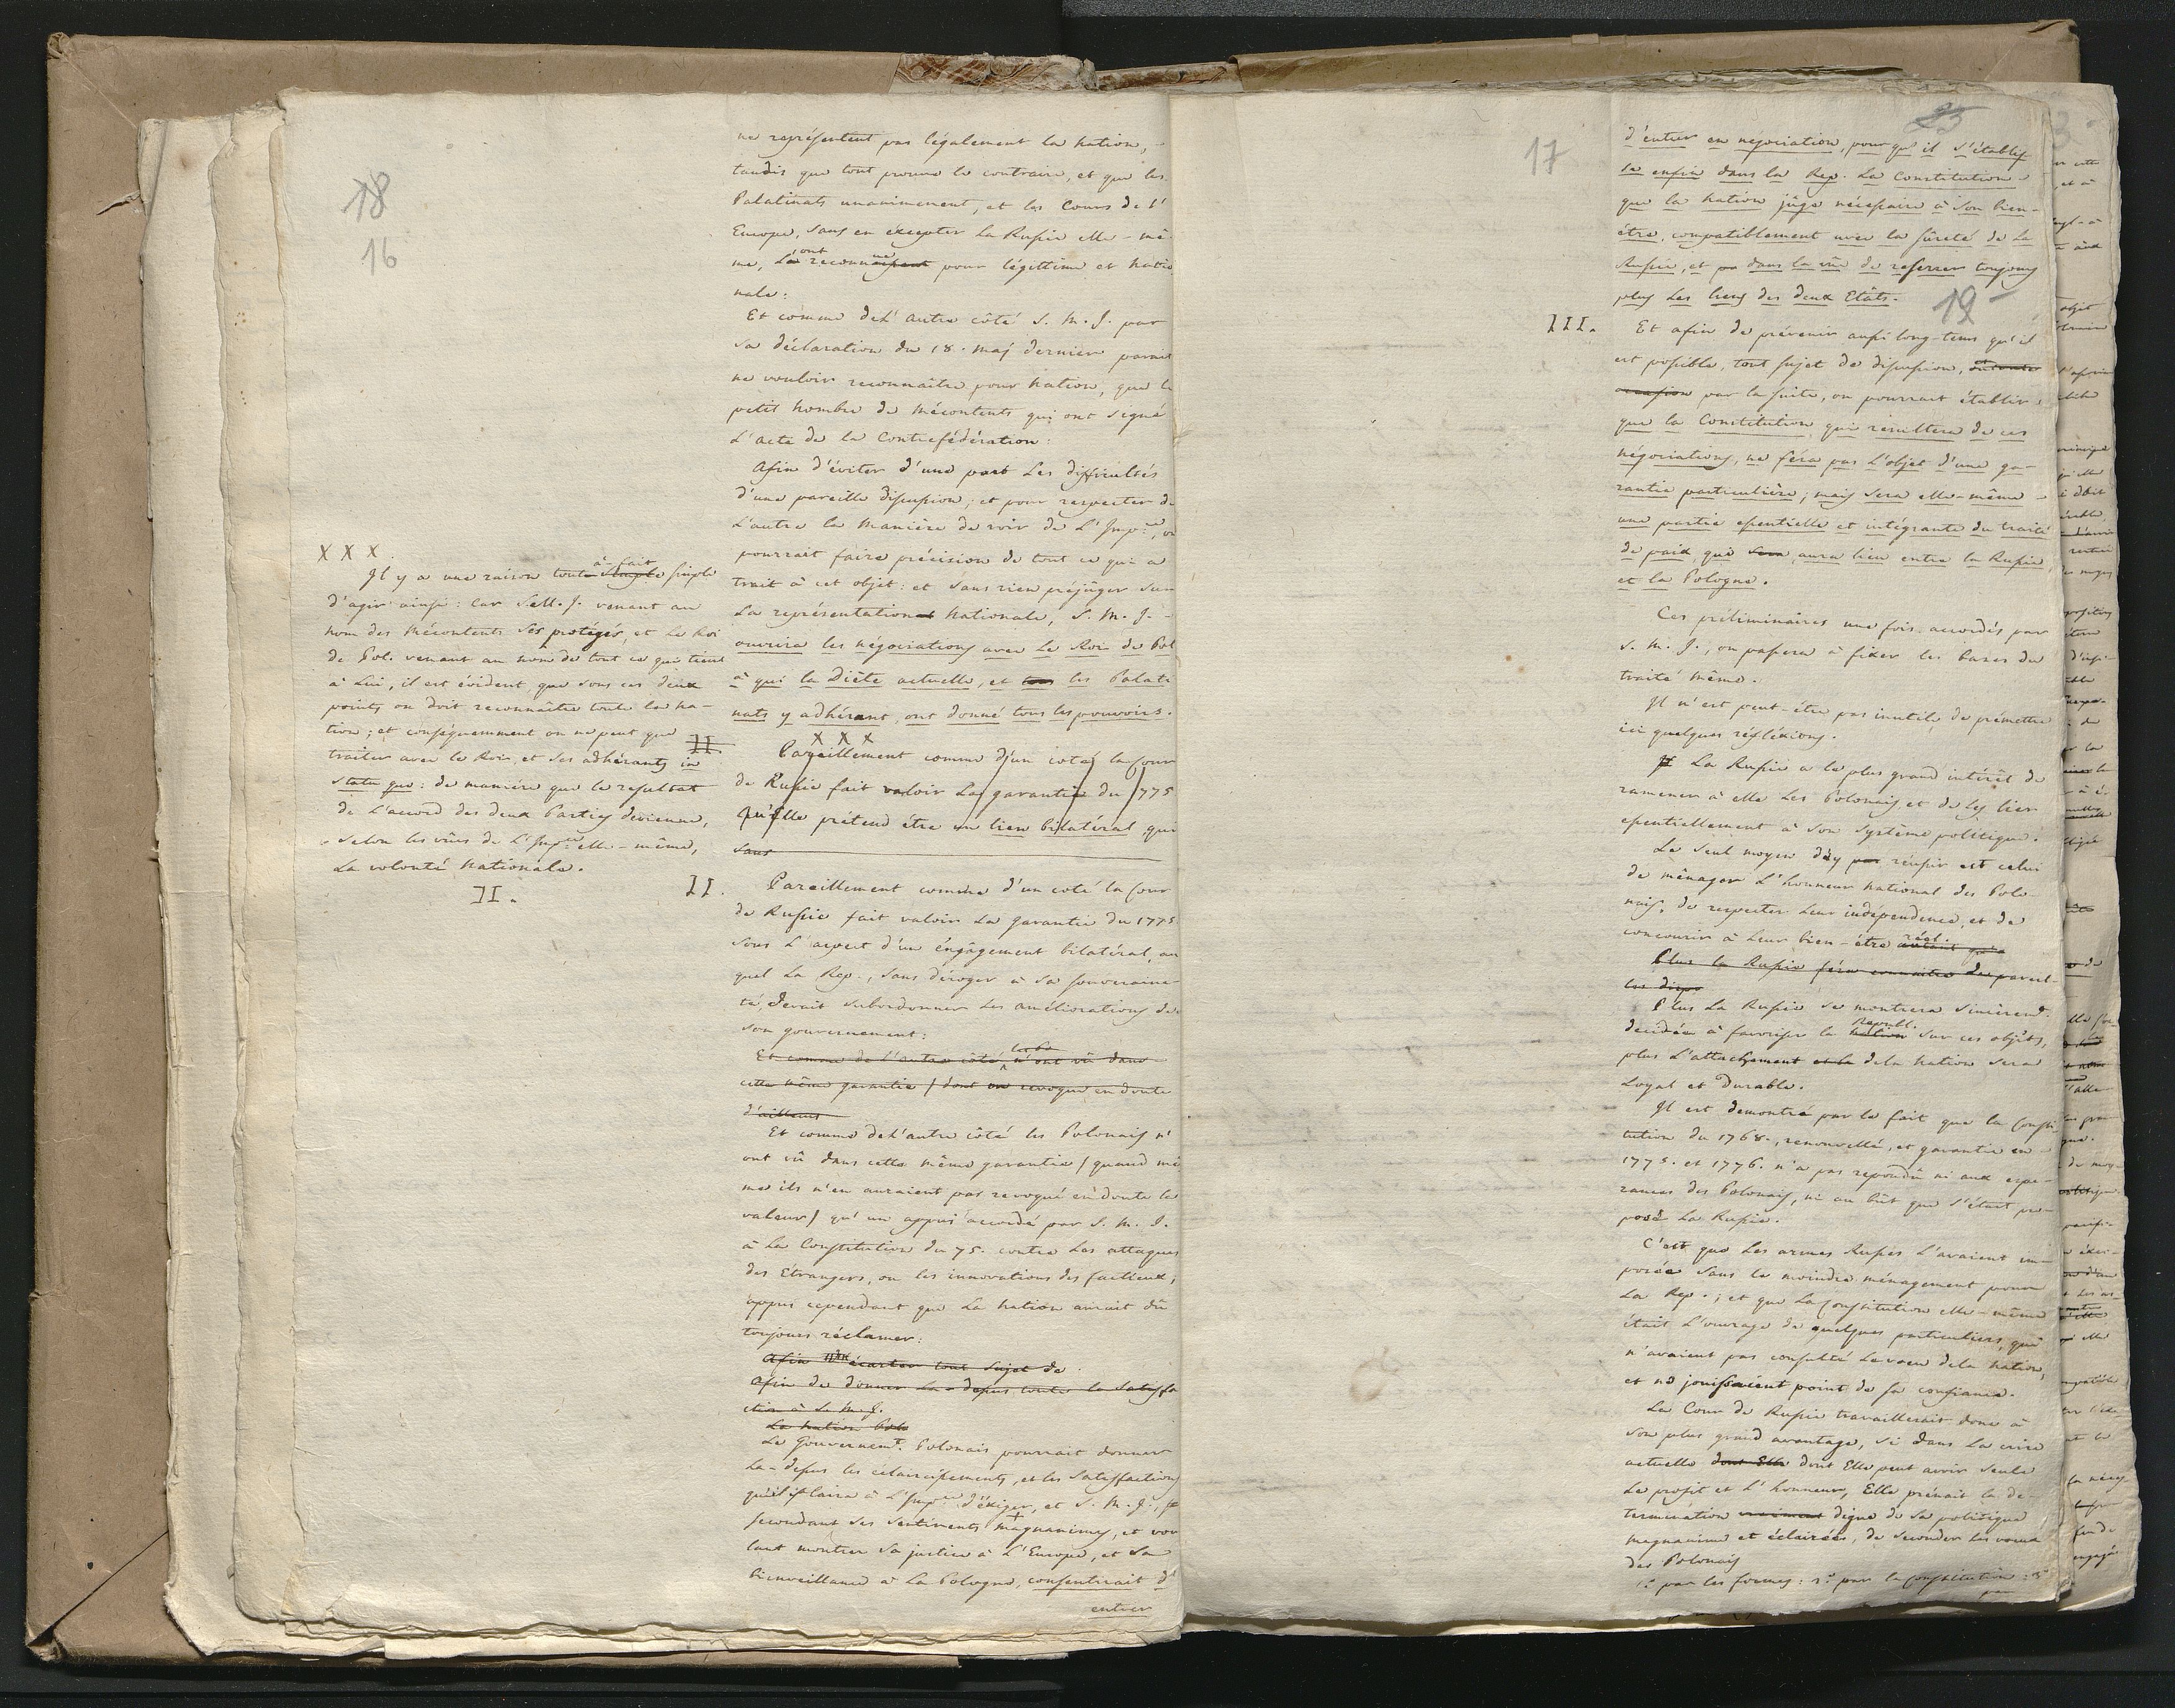 18
16
ne représentent pas légalement la Nation, -
tandis que tout prouve le contraire, et que les
Palatinats unanimement, et les Cours de l'
Europe, sans en excepter la Russie elle-mê-
me, l'ont reconnue pour légitime et Natio
nale:
Et comme de l'autre côté S. M. J. par
sa déclaration du 18. Maj dernier parait
ne vouloir reconnaître pour Nation, que le
petit nombre de Mécontents qui ont signé
L'acte de la Contrefédération:
Afin d'éviter d'une part Les difficultés
d'une pareille discussion; et pour respecter de
L'autre la Manière de voir de L'Impce, on
pourrait faire précision de tout ce qui a
trait à cet objet: et sans rien préjuger sur
La représentation Nationale, S. M. J. -
ouvrira les négociations avec Le Roi de Pol
à qui la Diète actuelle, et tous les Palati
nats y adhérant, ont donné tous les pouvoirs.
X X X
X X X.
Il y a une raison toute simple à-fait simple
d'agir ainsi: Car S. M. J. venant au
nom des Mécontents Ses protégés, et Le Roi
de Pol. venant au nom de tout ce qui tient
à Lui, il est évident, que sous ces deux
points on doit reconnaître toute la na-
tion; et conséquemment on ne peut que
traiter avec le Roi, et ses adhérants in
statu quo: de manière que le resultat
de l'accord des deux Parties devienne,
selon les vües de L'Impce elle-même,
La volonté Nationale.
II.
II.
Pareillement comme d'un coté la Cour
de Russie fait valoir La garantie du 1775
Qu'elle prétend être un lien bilatéral qui
sans
II.
Pareillement comme d'un coté la Cour
de Russie fait valoir La garantie du 1775
sous L'aspect d'un engagement bilatéral, au
quel La Rep., sans déroger à sa souveraine-
té, devait subordonner les améliorations de
son gouvernement:
Et comme de l'autre côté n'ont vû dans
cette même garantie / dont on revoque en doute
d'ailleurs
Et comme de L'autre côté les Polonais n'
ont vû dans cette même garantie / quand mê
me ils n'en auraient pas revoqué en doute la
valeur / qu'un appui accordé par S. M. J.
à La Constitution du 75. contre Les attaques
des Etrangers, ou les innovations des factieux;
appui cependant que La Nation aurait dû
toujours réclamer:
Afin d'écarter tout sujet de
Afin de donner La-dessus toute la satisfa
ction à S. M. J.
La Nation Polo
Le Gouvernemt. Polonais pourrait donner
La-dessus les éclaircissements, et les satisfactions
qu'il plaira à L'Impce d'exiger, et S. M. J.,
secondant ses sentiments magnanimes, et vou
lant montrer sa justice à L'Europe, et sa
bienveillance à La Pologne, consentirait d'
entrer
17
23
d'entrer en negociation, pour qu'il s'établis
se enfin dans la Rep. La Constitution
que la Nation juge nécessaire à Son bien-
être, compatiblement avec la sûreté de La
Russie, et dans la vüe de resserrer toujours
plus Les liens des deux Etâts.
19
III.
Et afin de prévenir aussi long-tems qu'il
est possible, tout sujet de discussion,
occasion par la suite, on pourrait établir
que la Constitution, qui résultera de ces
négociations, ne séra pas L'objet d'une ga-
rantie particulière; mais Sera elle-même
une partie essentielle et intégrante du traité
de paix, qui Sera aura lieu entre la Russie,
et la Pologne.
Ces préliminaires une fois accordés par
S. M. J., on passera à fixer les bases du
traité même.
Il n'est peut-être pas inutile, de prémettre
ici quelques réfléxions.
La Russie a le plus grand intérêt de
ramener à elle Les Polonais et de Les lier
essentiellement à Son Système politique.
Le seul moyen d'y réussir est celui
de ménager L'honneur national des Polo-
nais, de respecter Leur indépendence, et de
concourir à Leur bien-être réel. autant qu'a
Plus la Russie féra connaitre de pareil-
les dispo
Plus La Russie se montrera sincèremt.
decidée à favoriser la Nation Republ. sur ces objéts,
plus L'attachement et la de la Nation sera
Loyal et Durable.
Il est demontré par le fait que la Consti
tution du 1768., renouvellée, et garantie en
1775. et 1776. n'a pas repondu ni aux espe-
rances des Polonais, ni au bût que s'était pro-
posé La Russie.
C'est que Les armes Russes L'avaient im-
posée sans le moindre ménagement pour
La Rep.; et que La Constitution elle-même
était L'ouvrage de quelques particuliers, qui
n'avaient pas consulté Le voeu de la Nation,
et ne jouissaient point de sa confiance.
La Cour de Russie travaillerait donc à
son plus grand avantage, si dans La crise
actuelle dont Elle dont Elle peut avoir seule
Le profit et L'honneur, Elle prénait la de-
termination vraiment digne de sa politique
magnanime et éclairée, de seconder les voeux
des Polonais
1° par les formes: 2° par la Constitution: 3°
par